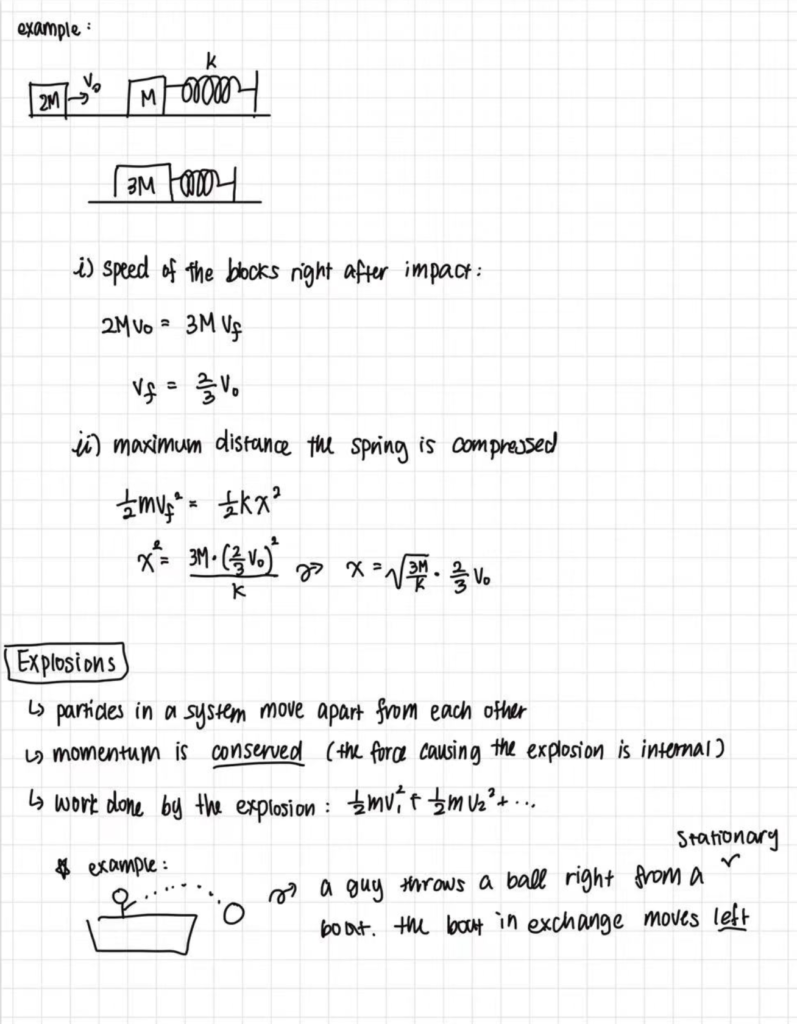 example:
k
2M v₀ M
3M
i) speed of the blocks right after impact:
2Mv₀ = 3Mv_f
v_f = 2/3 v₀
ii) maximum distance the spring is compressed
1/2 mv_f² = 1/2 kx²
x² = 3M·(2/3 v₀)² / k → x = √(3M/k) · 2/3 v₀
Explosions
↳ particles in a system move apart from each other
↳ momentum is conserved (the force causing the explosion is internal)
↳ work done by the explosion: 1/2 mv₁² + 1/2 mv₂² + ...
stationary
example:
a guy throws a ball right from a
boat. the boat in exchange moves left